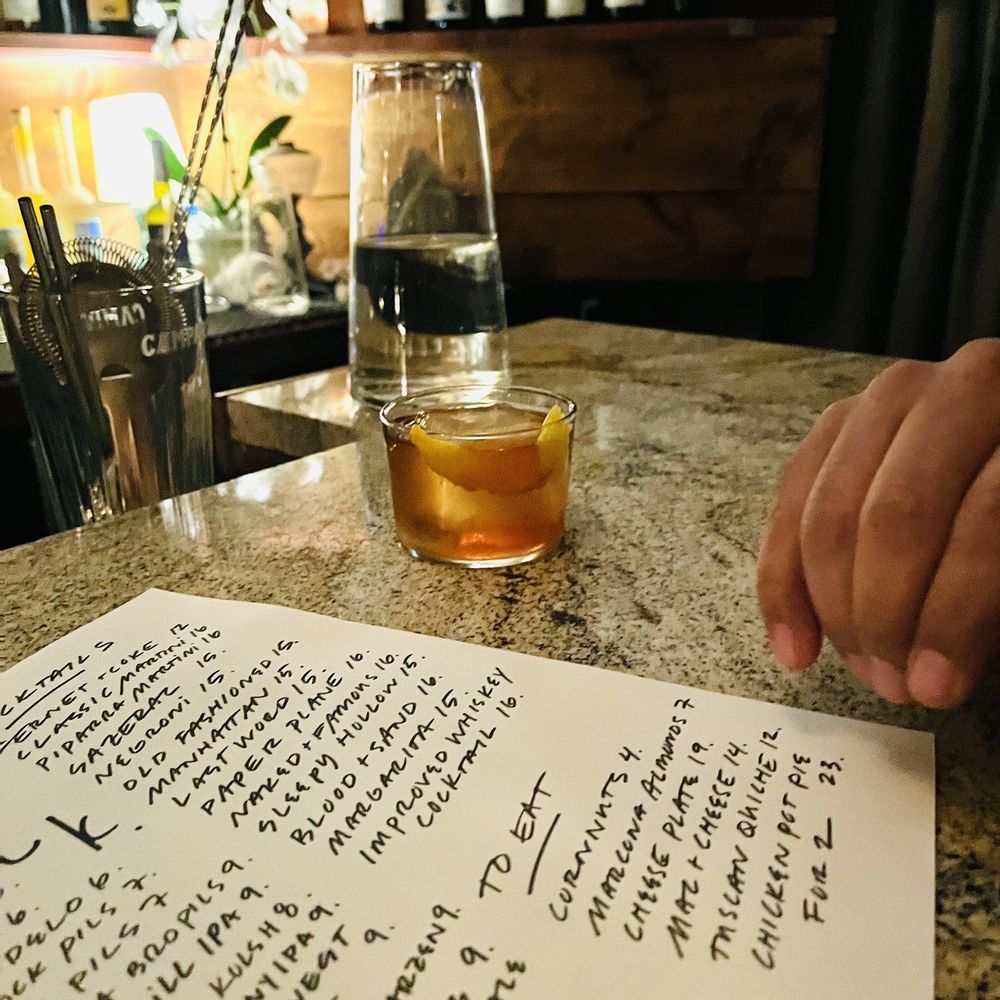 CKTAILS
FERNET + COKE 12
CLASSIC MARTINI 16
PIPARRA MARTINI 16
SAZERAC
NEGRONI 15.
OLD FASHIONED 15.
MANHATTAN 15.
LAST WORD 15.
PAPER PLANE 16.
NAKED + FAMOUS 16.
SLEEPY HOLLOW 15.
BLOOD + SAND 16.
MARGARITA 15
IMPROVED WHISKEY
COCKTAIL 16.
ck.
6.
DELO 6.
OCK PILS 7.
PILS 7
A BROPILS 9.
ILL IPA 9.
KOLSH 8
NY IPA 9.
VEGT 9.
ARZEN 9.
9.
ALE
TO EAT
CORNNUTS 4.
MARCONA ALMONDS 7
CHEESE PLATE 19.
MAC + CHEESE 14.
TUSCAN QUICHE 12.
CHICKEN POT PIE
FOR 2 23.